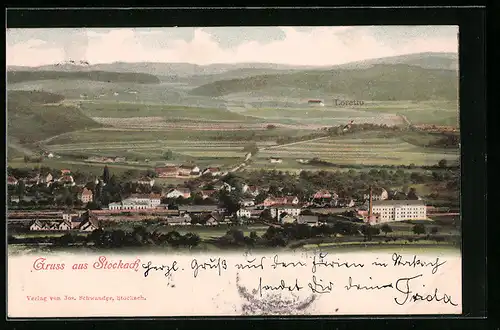 Loretto
Gruss aus Stockach
herzl. Gruß aus den Ferien in Stockach
sendet Dir deine Frida
Verlag von Jos. Schwandge, Stockach.